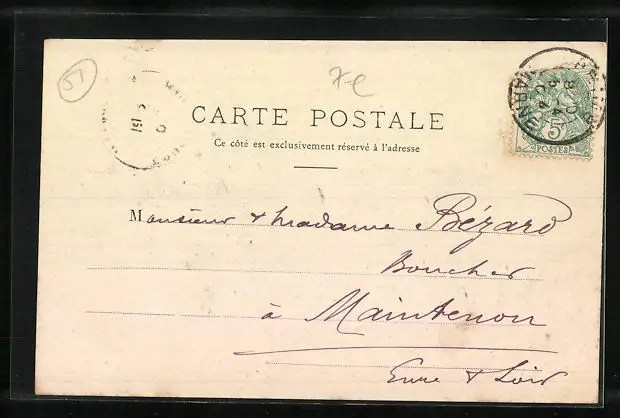 51
CARTE POSTALE
Ce côté est exclusivement réservé à l'adresse
5c
POSTES
Monsieur & madame Bézard
Boucher
à Maintenon
Eure & Loir